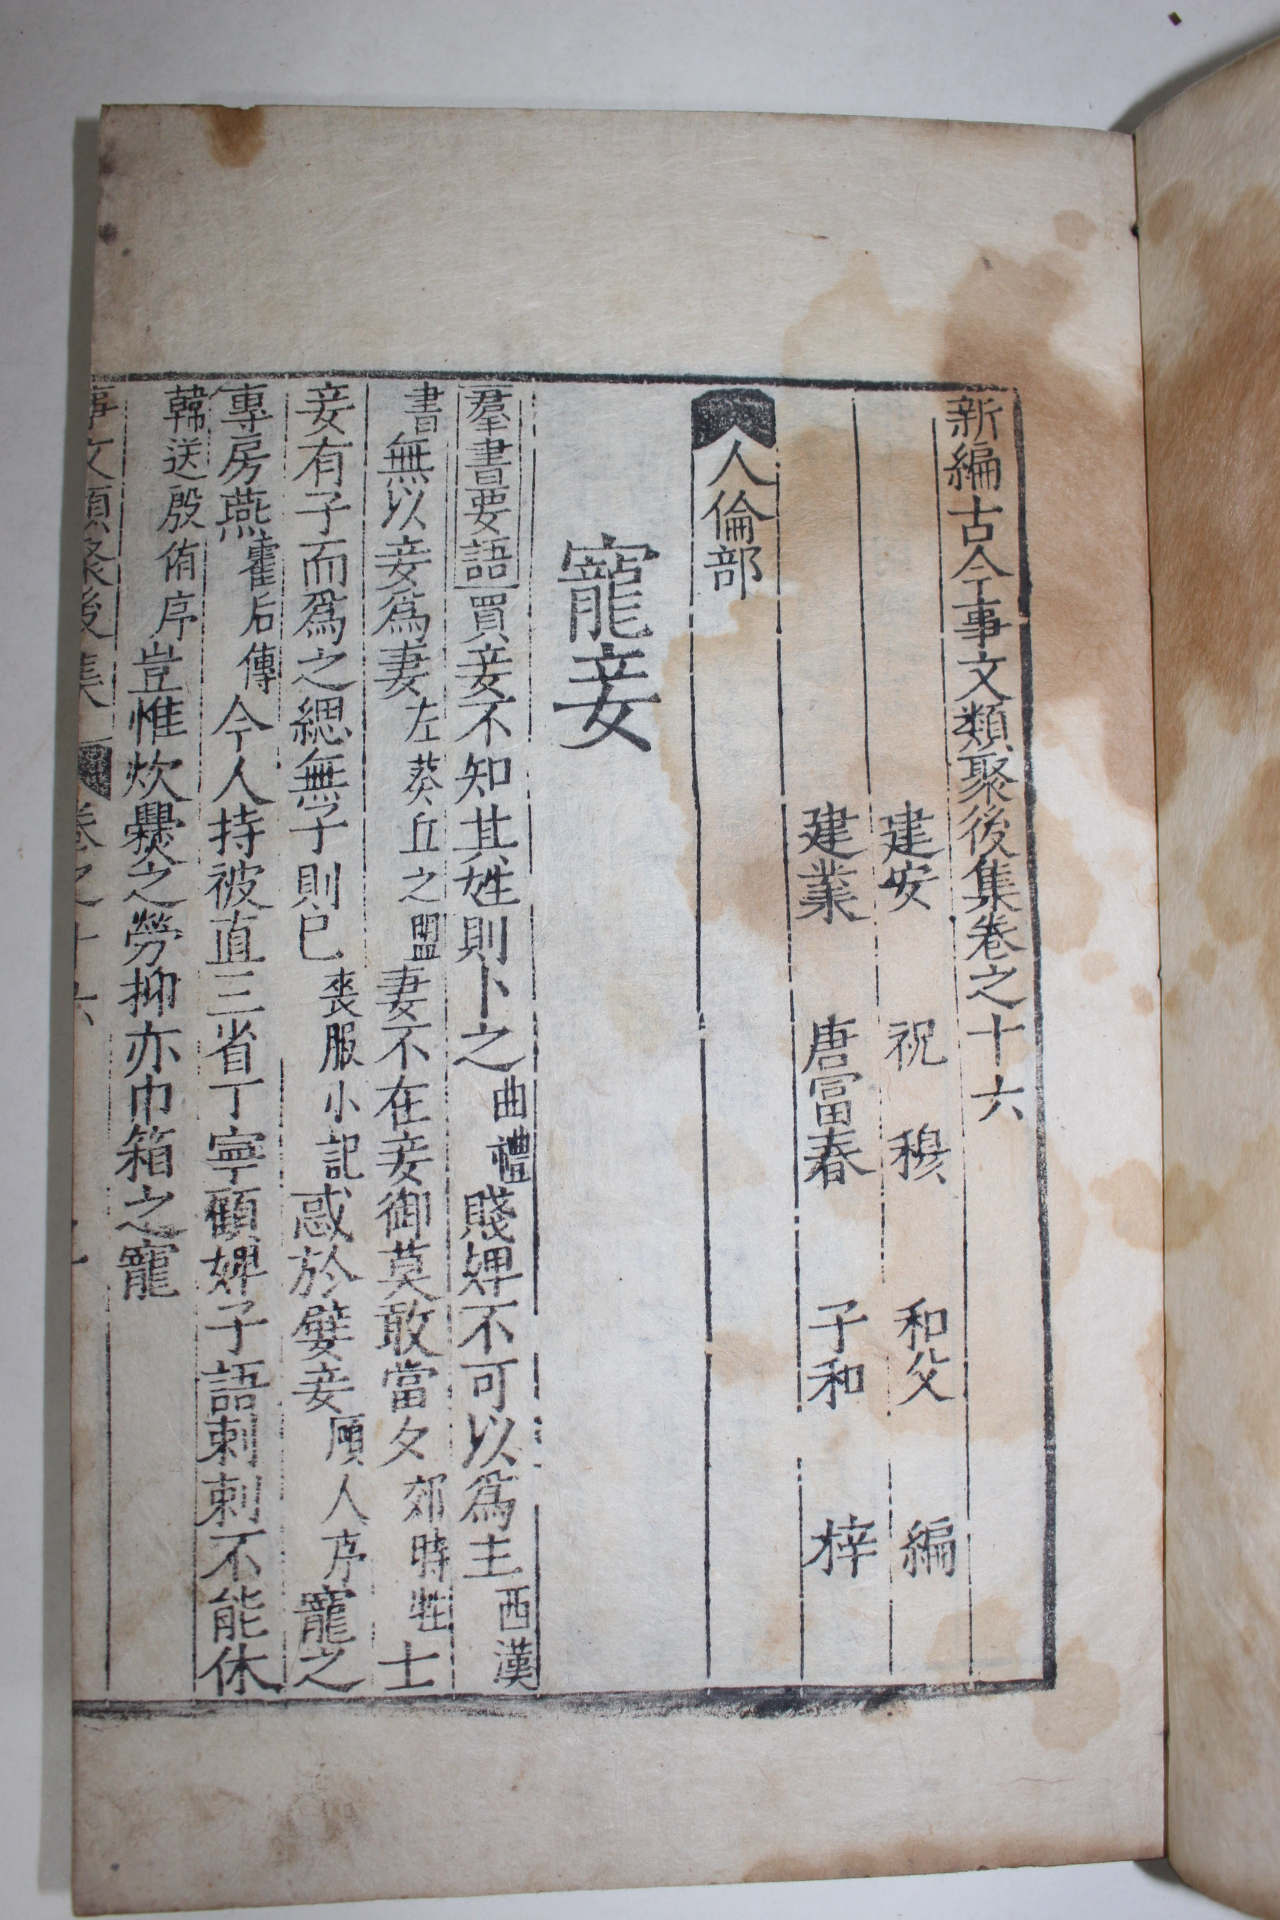 新編古今事文類聚後集卷之十六
建安 祝 穆 和父 編
建業 唐富春 子和 梓
人倫部
寵妾
羣書要語買妾不知其姓則卜之曲禮賤婢不可以爲主西漢
書無以妾爲妻左葵丘之盟妻不在妾御莫敢當夕郊時牲士
妾有子而爲之緦無子則已喪服小記惑於嬖妾碩人序寵之
專房燕霍后傳今人持被直三省丁寧顧婢子語刺刺不能休
韓送殷侑序豈惟炊爨之勞抑亦巾箱之寵
事文類聚後集 卷之十六